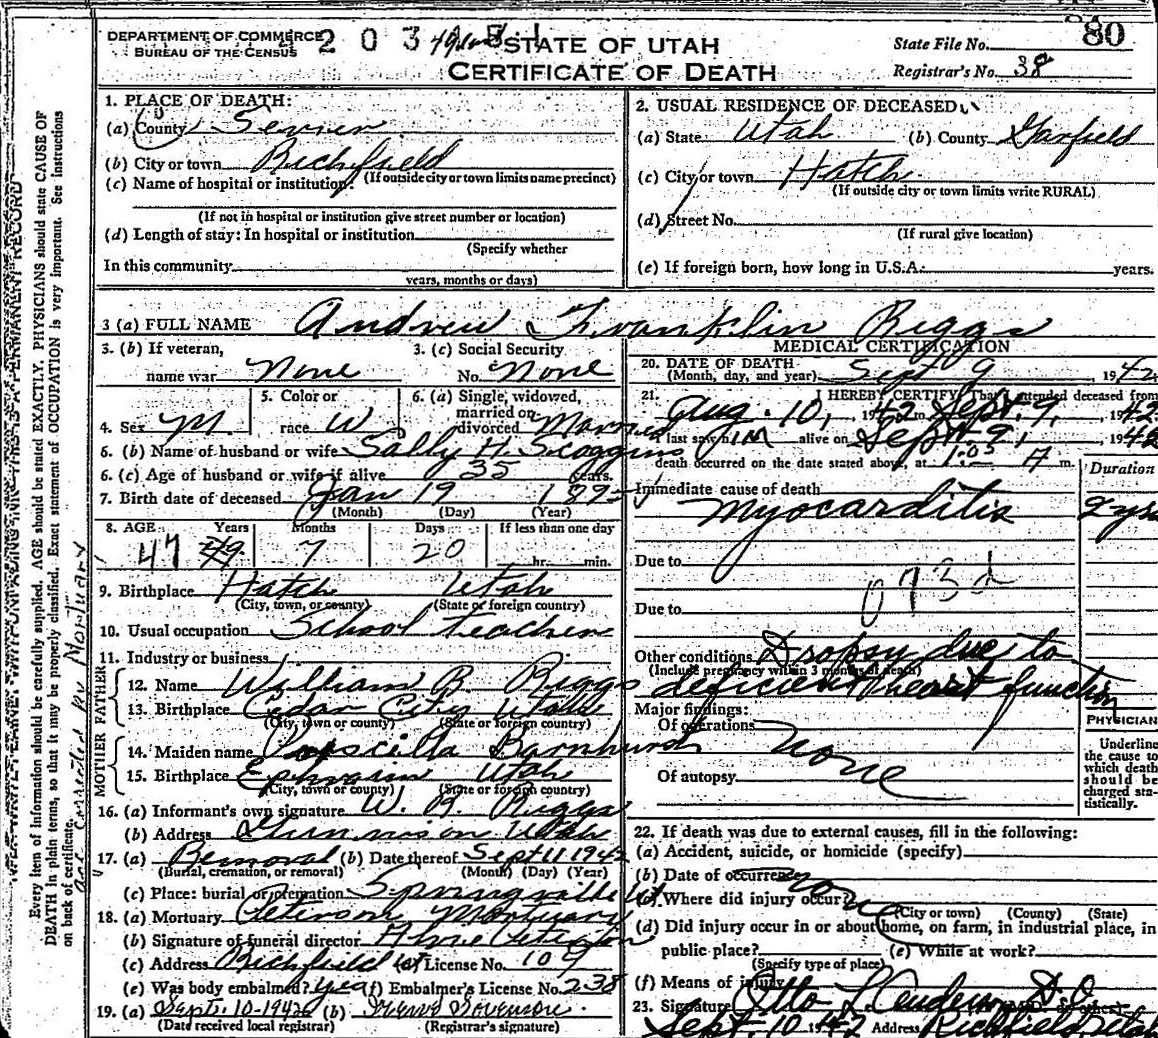 80
DEPARTMENT OF COMMERCE
BUREAU OF THE CENSUS
2 0 3
STATE OF UTAH
CERTIFICATE OF DEATH
State File No.
Registrar's No. 38
1. PLACE OF DEATH:
(a) County Sevier
(b) City or town Richfield
(If outside city or town limits name precinct)
(c) Name of hospital or institution:
(If not in hospital or institution give street number or location)
(d) Length of stay: In hospital or institution
(Specify whether
In this community
years, months or days)
2. USUAL RESIDENCE OF DECEASED:
(a) State Utah (b) County Garfield
(c) City or town Hatch
(If outside city or town limits write RURAL)
(d) Street No.
(If rural give location)
(e) If foreign born, how long in U.S.A.: years.
3 (a) FULL NAME Andrew Franklin Riggs
3. (b) If veteran, name war None
3. (c) Social Security No. None
4. Sex M
5. Color or race W
6. (a) Single, widowed, married or divorced Married
6. (b) Name of husband or wife Sally H. Scoggins
6. (c) Age of husband or wife if alive 35 years.
7. Birth date of deceased Jan 19 1895
(Month) (Day) (Year)
8. AGE Years Months Days If less than one day
47 49 7 20 hr. min.
9. Birthplace Hatch Utah
(City, town, or county) (State or foreign country)
10. Usual occupation School Teacher
11. Industry or business
FATHER
12. Name William R. Riggs
13. Birthplace Cedar City Utah
(City, town or county) (State or foreign country)
MOTHER
14. Maiden name Priscilla Barnhurst
15. Birthplace Ephraim Utah
(City, town or county) (State or foreign country)
16. (a) Informant's own signature W. R. Riggs
(b) Address Gunnison Utah
17. (a) Removal (b) Date thereof Sept 11 1942
(Burial, cremation, or removal) (Month) (Day) (Year)
(c) Place: burial or cremation Springville Ut
18. (a) Mortuary Peterson Mortuary
(b) Signature of funeral director Peterson
(c) Address Richfield License No. 109
(e) Was body embalmed? yes (f) Embalmer's License No. 238
19. (a) Sept. 10-1942 (b) Sorenson
(Date received local registrar) (Registrar's signature)
MEDICAL CERTIFICATION
20. DATE OF DEATH
(Month, day, and year) Sept 9 1942
21. I HEREBY CERTIFY That I attended deceased from
Aug. 10, 1942 to Sept. 9, 1942
I last saw him alive on Sept. 9, 1942
death occurred on the date stated above, at 1:05 A m.
Duration
Immediate cause of death
Myocarditis 2 yrs
Due to
073d
Due to
Other conditions Dropsy due to
(Include pregnancy within 3 months of death)
deficient heart function
Major findings:
Of operations None
Of autopsy
PHYSICIAN
Underline
the cause to
which death
should be
charged sta-
tistically.
22. If death was due to external causes, fill in the following:
(a) Accident, suicide, or homicide (specify)
(b) Date of occurrence
(c) Where did injury occur?
(City or town) (County) (State)
(d) Did injury occur in or about home, on farm, in industrial place, in
public place? (e) While at work?
(Specify type of place)
(f) Means of injury
23. Signature Otto L Anderson D.O.
Sept. 10 1942 Address Richfield, Utah
Every item of information should be carefully supplied. AGE should be stated EXACTLY. PHYSICIANS should state CAUSE OF
DEATH in plain terms, so that it may be properly classified. Exact statement of OCCUPATION is very important. See instructions
on back of certificate.
age corrected by Mortuary